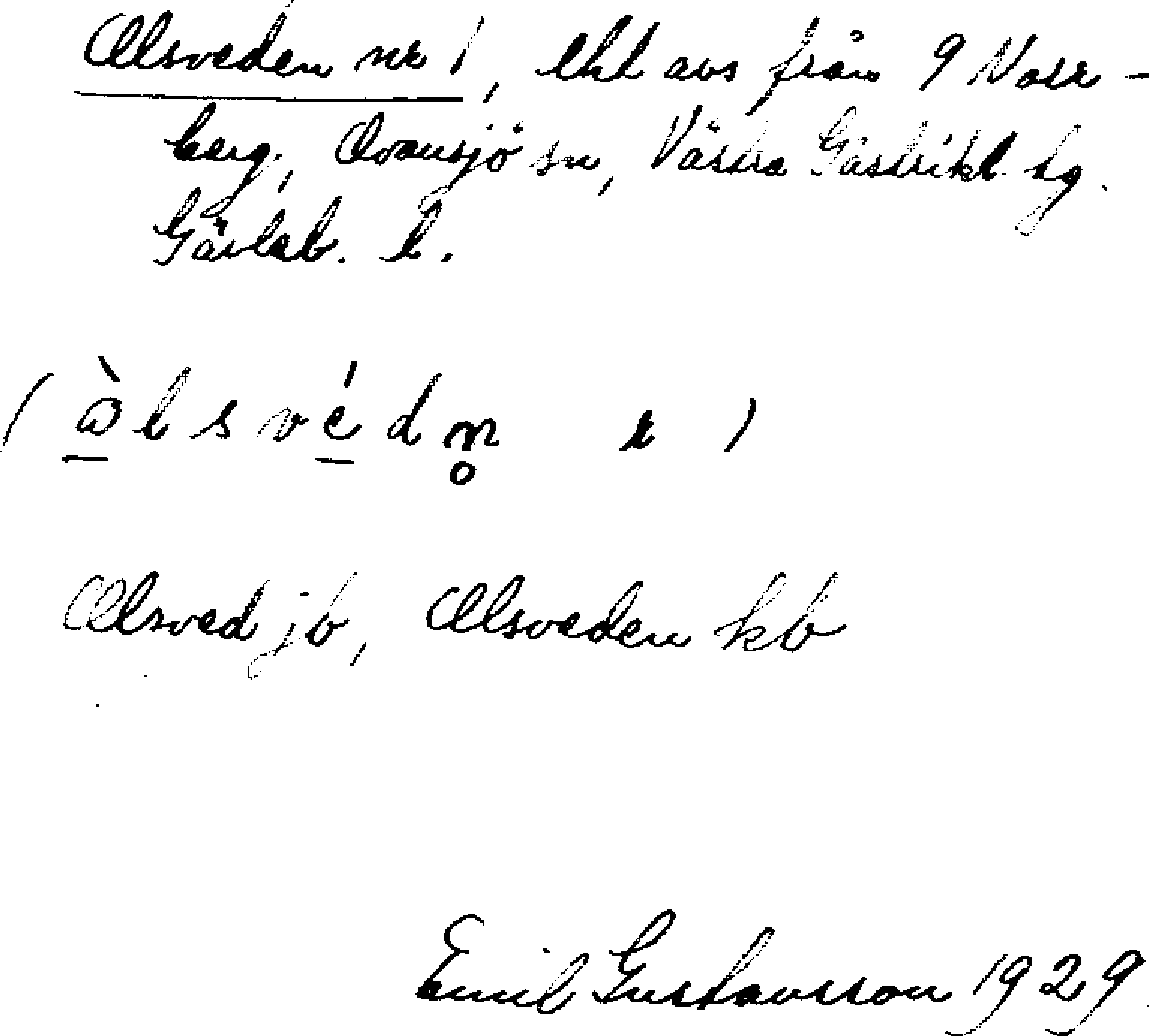 Alsveden nr 1, lht avs från 9 Norr-
berg, Ovansjö sn, Västra Gästrikl. hg.
Gävleb. l.
(à l s v é d n̥ r )
Alsved jb, Alsveden kb
Emil Gustavsson 1929